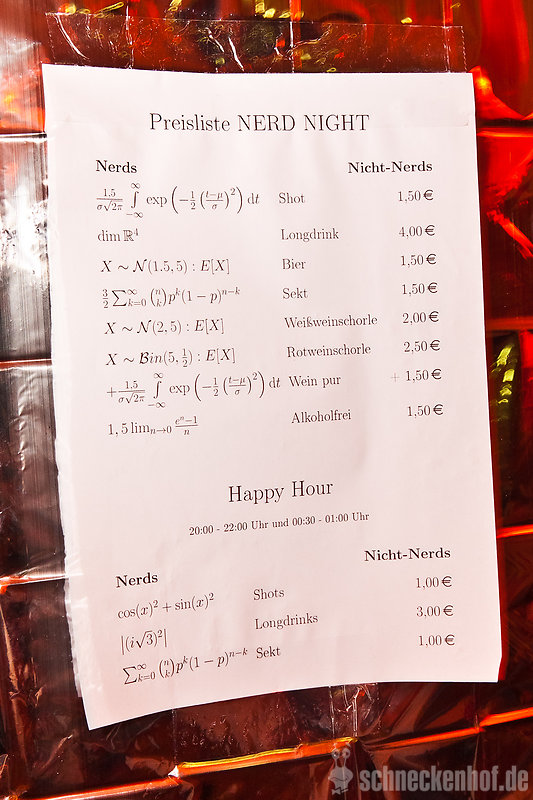 Preisliste NERD NIGHT
Nerds Nicht-Nerds
\frac{1.5}{\sigma\sqrt{2\pi}} \int_{-\infty}^{\infty} \exp\left(-\frac{1}{2}\left(\frac{t-\mu}{\sigma}\right)^2\right) dt Shot 1,50 €
dim ℝ⁴ Longdrink 4,00 €
X ∼ N(1.5, 5) : E[X] Bier 1,50 €
\frac{3}{2} \sum_{k=0}^{\infty} \binom{n}{k} p^k(1 − p)^{n−k} Sekt 1,50 €
X ∼ N(2, 5) : E[X] Weißweinschorle 2,00 €
X ∼ Bin(5, ½) : E[X] Rotweinschorle 2,50 €
+\frac{1.5}{\sigma\sqrt{2\pi}} \int_{-\infty}^{\infty} \exp\left(-\frac{1}{2}\left(\frac{t-\mu}{\sigma}\right)^2\right) dt Wein pur + 1,50 €
1, 5 \lim_{n→0} \frac{e^n−1}{n} Alkoholfrei 1,50 €
Happy Hour
20:00 - 22:00 Uhr und 00:30 - 01:00 Uhr
Nerds Nicht-Nerds
cos(x)² + sin(x)² Shots 1,00 €
|(i√3)²| Longdrinks 3,00 €
\sum_{k=0}^{\infty} \binom{n}{k} p^k(1 − p)^{n−k} Sekt 1,00 €
schneckenhof.de